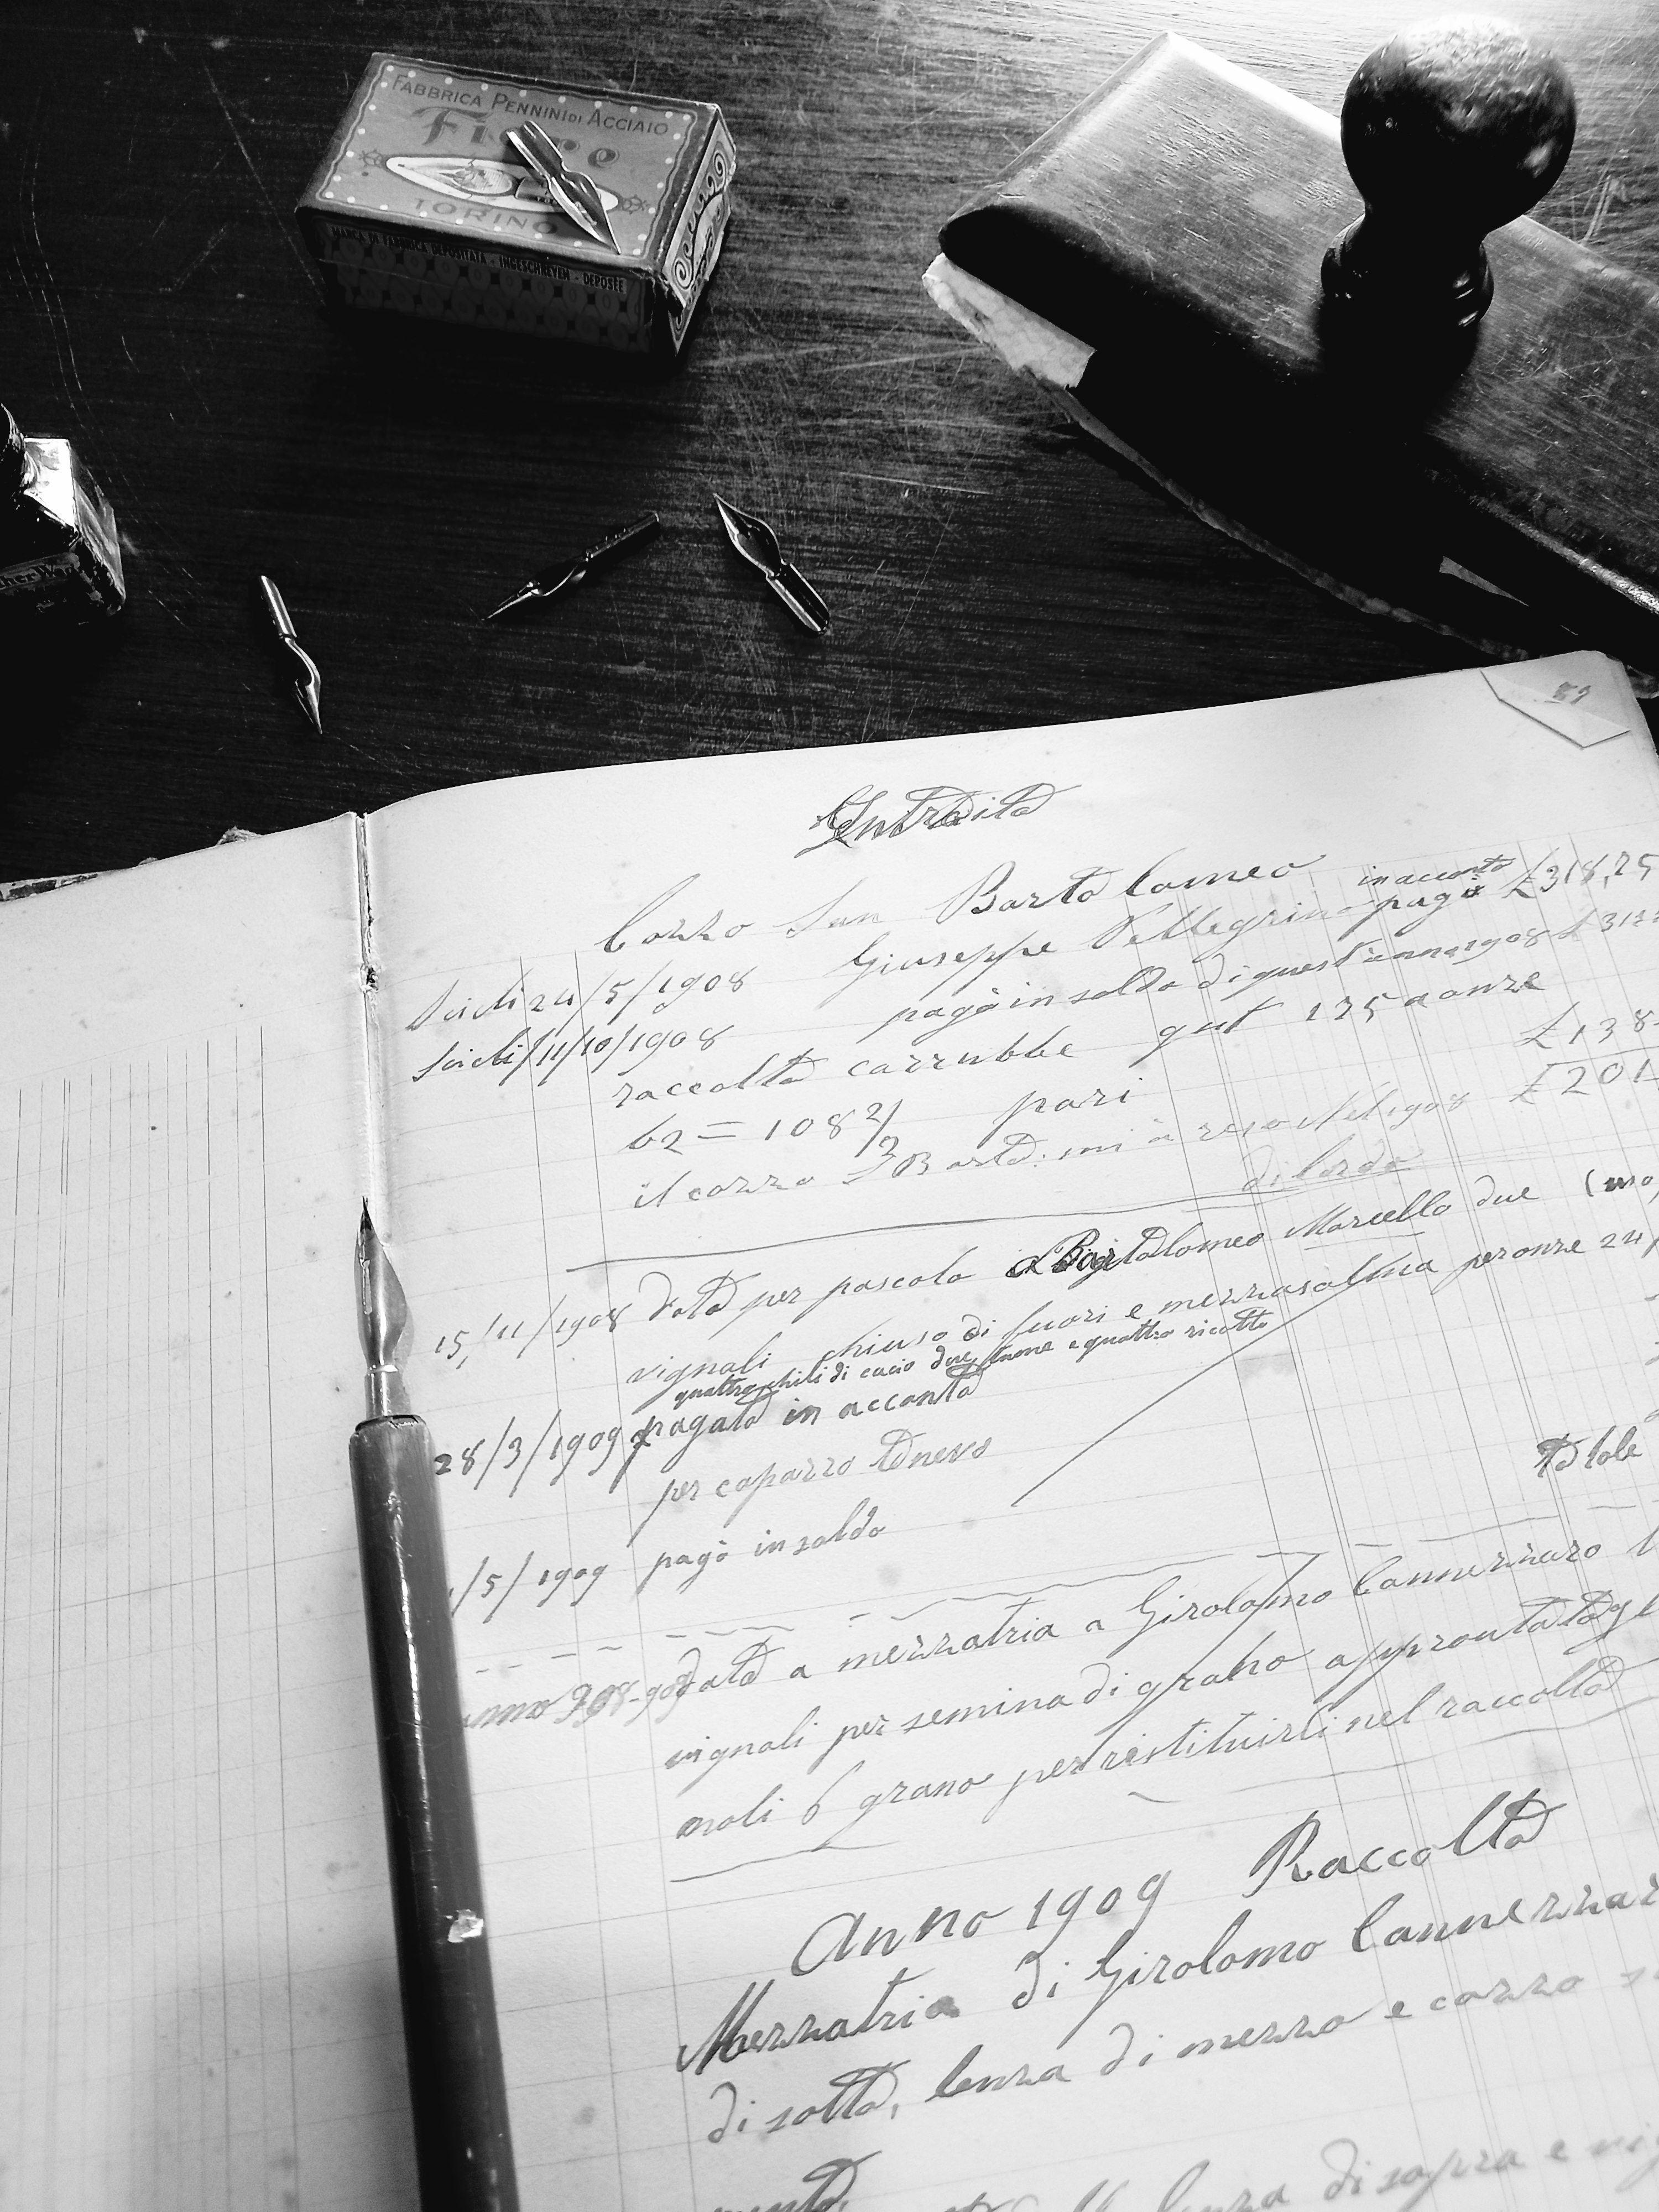 FABBRICA PENNINI DI ACCIAIO
Fiore
TORINO
MARCA DI FABBRICA DEPOSITATA - INGESCHREVEN - DEPOSÉE
Introito
Cozzo San Bartolomeo
Scicli 24/5/1908 Giuseppe Pellegrino in acconto pagò £318,25
Scicli 11/10/1908 pagò in saldo di quest'anno 1908 £
raccolto carrubbe qnt 175 a onze
62 = 108 pari £138
il cozzo S Barto: mi à reso Nel 1908 £201
di lordo
15/11/1908 Dato per pascolo a Bartolomeo Marcello due
vignali chiuso di fuori e mezzasalma per onze 24,
quattro chili di cacio due tume e quattro ricotte
28/3/1909 pagato in acconto
per caparro Tonevo
/5/1909 pagò in saldo
Totole
anno 908-909 Dato a mezzatria a Girolamo Cannezzaro
vignali per semina di grano approntatogl
moli 6 grano per restituirli nel raccolto
Anno 1909 Raccolto
Mezzatria di Girolomo Cannezzar
di sotto, lenza di mezzo e cozzo
lenza di sopra e vig